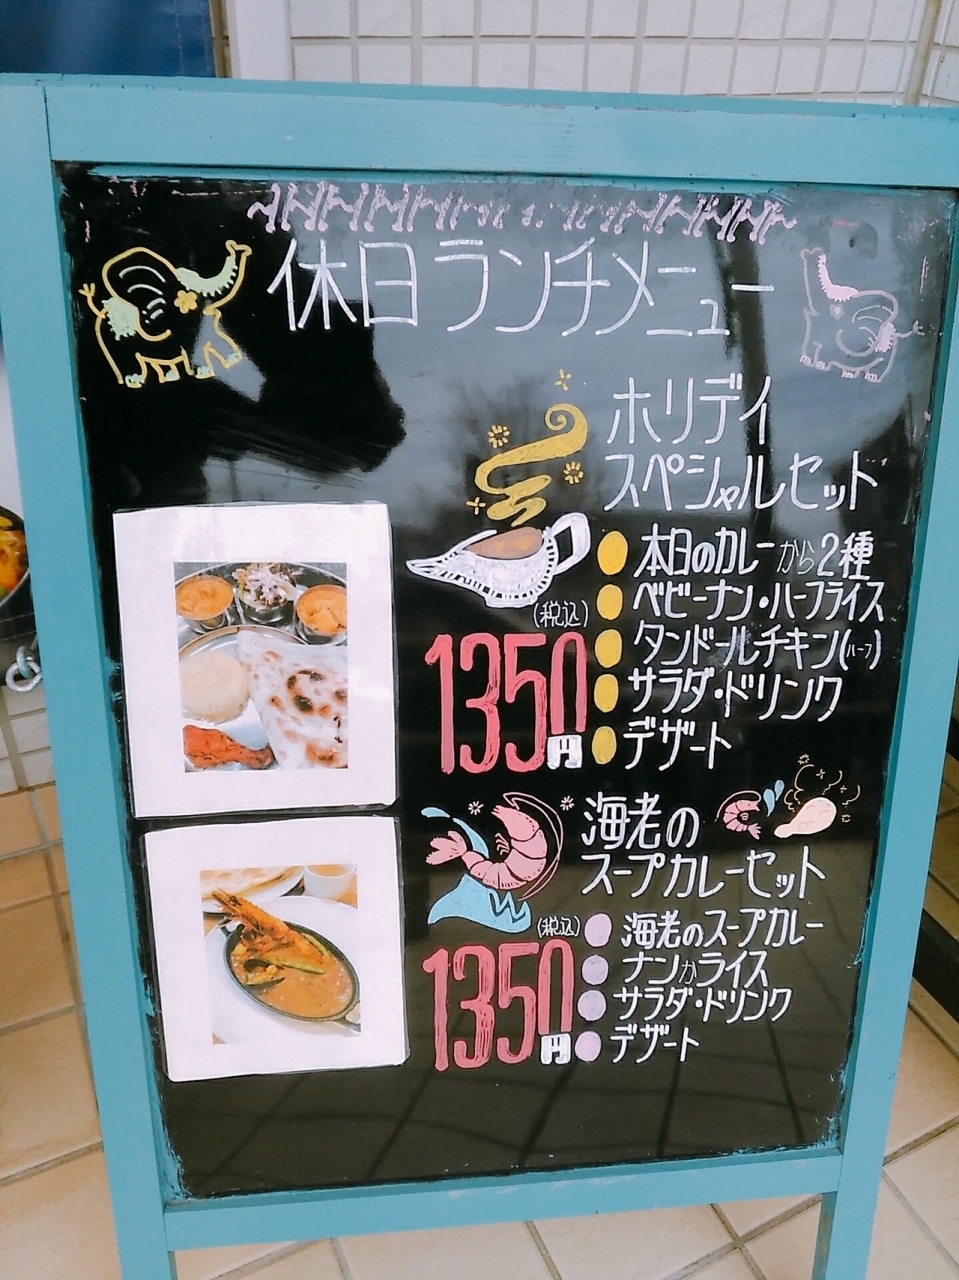 休日ランチメニュー
ホリデイ
スペシャルセット
本日のカレーから2種
ベビーナン・ハーフライス
タンドールチキン(ハーフ)
サラダ・ドリンク
デザート
(税込)
1350円
海老の
スープカレーセット
海老のスープカレー
ナンかライス
サラダ・ドリンク
デザート
(税込)
1350円